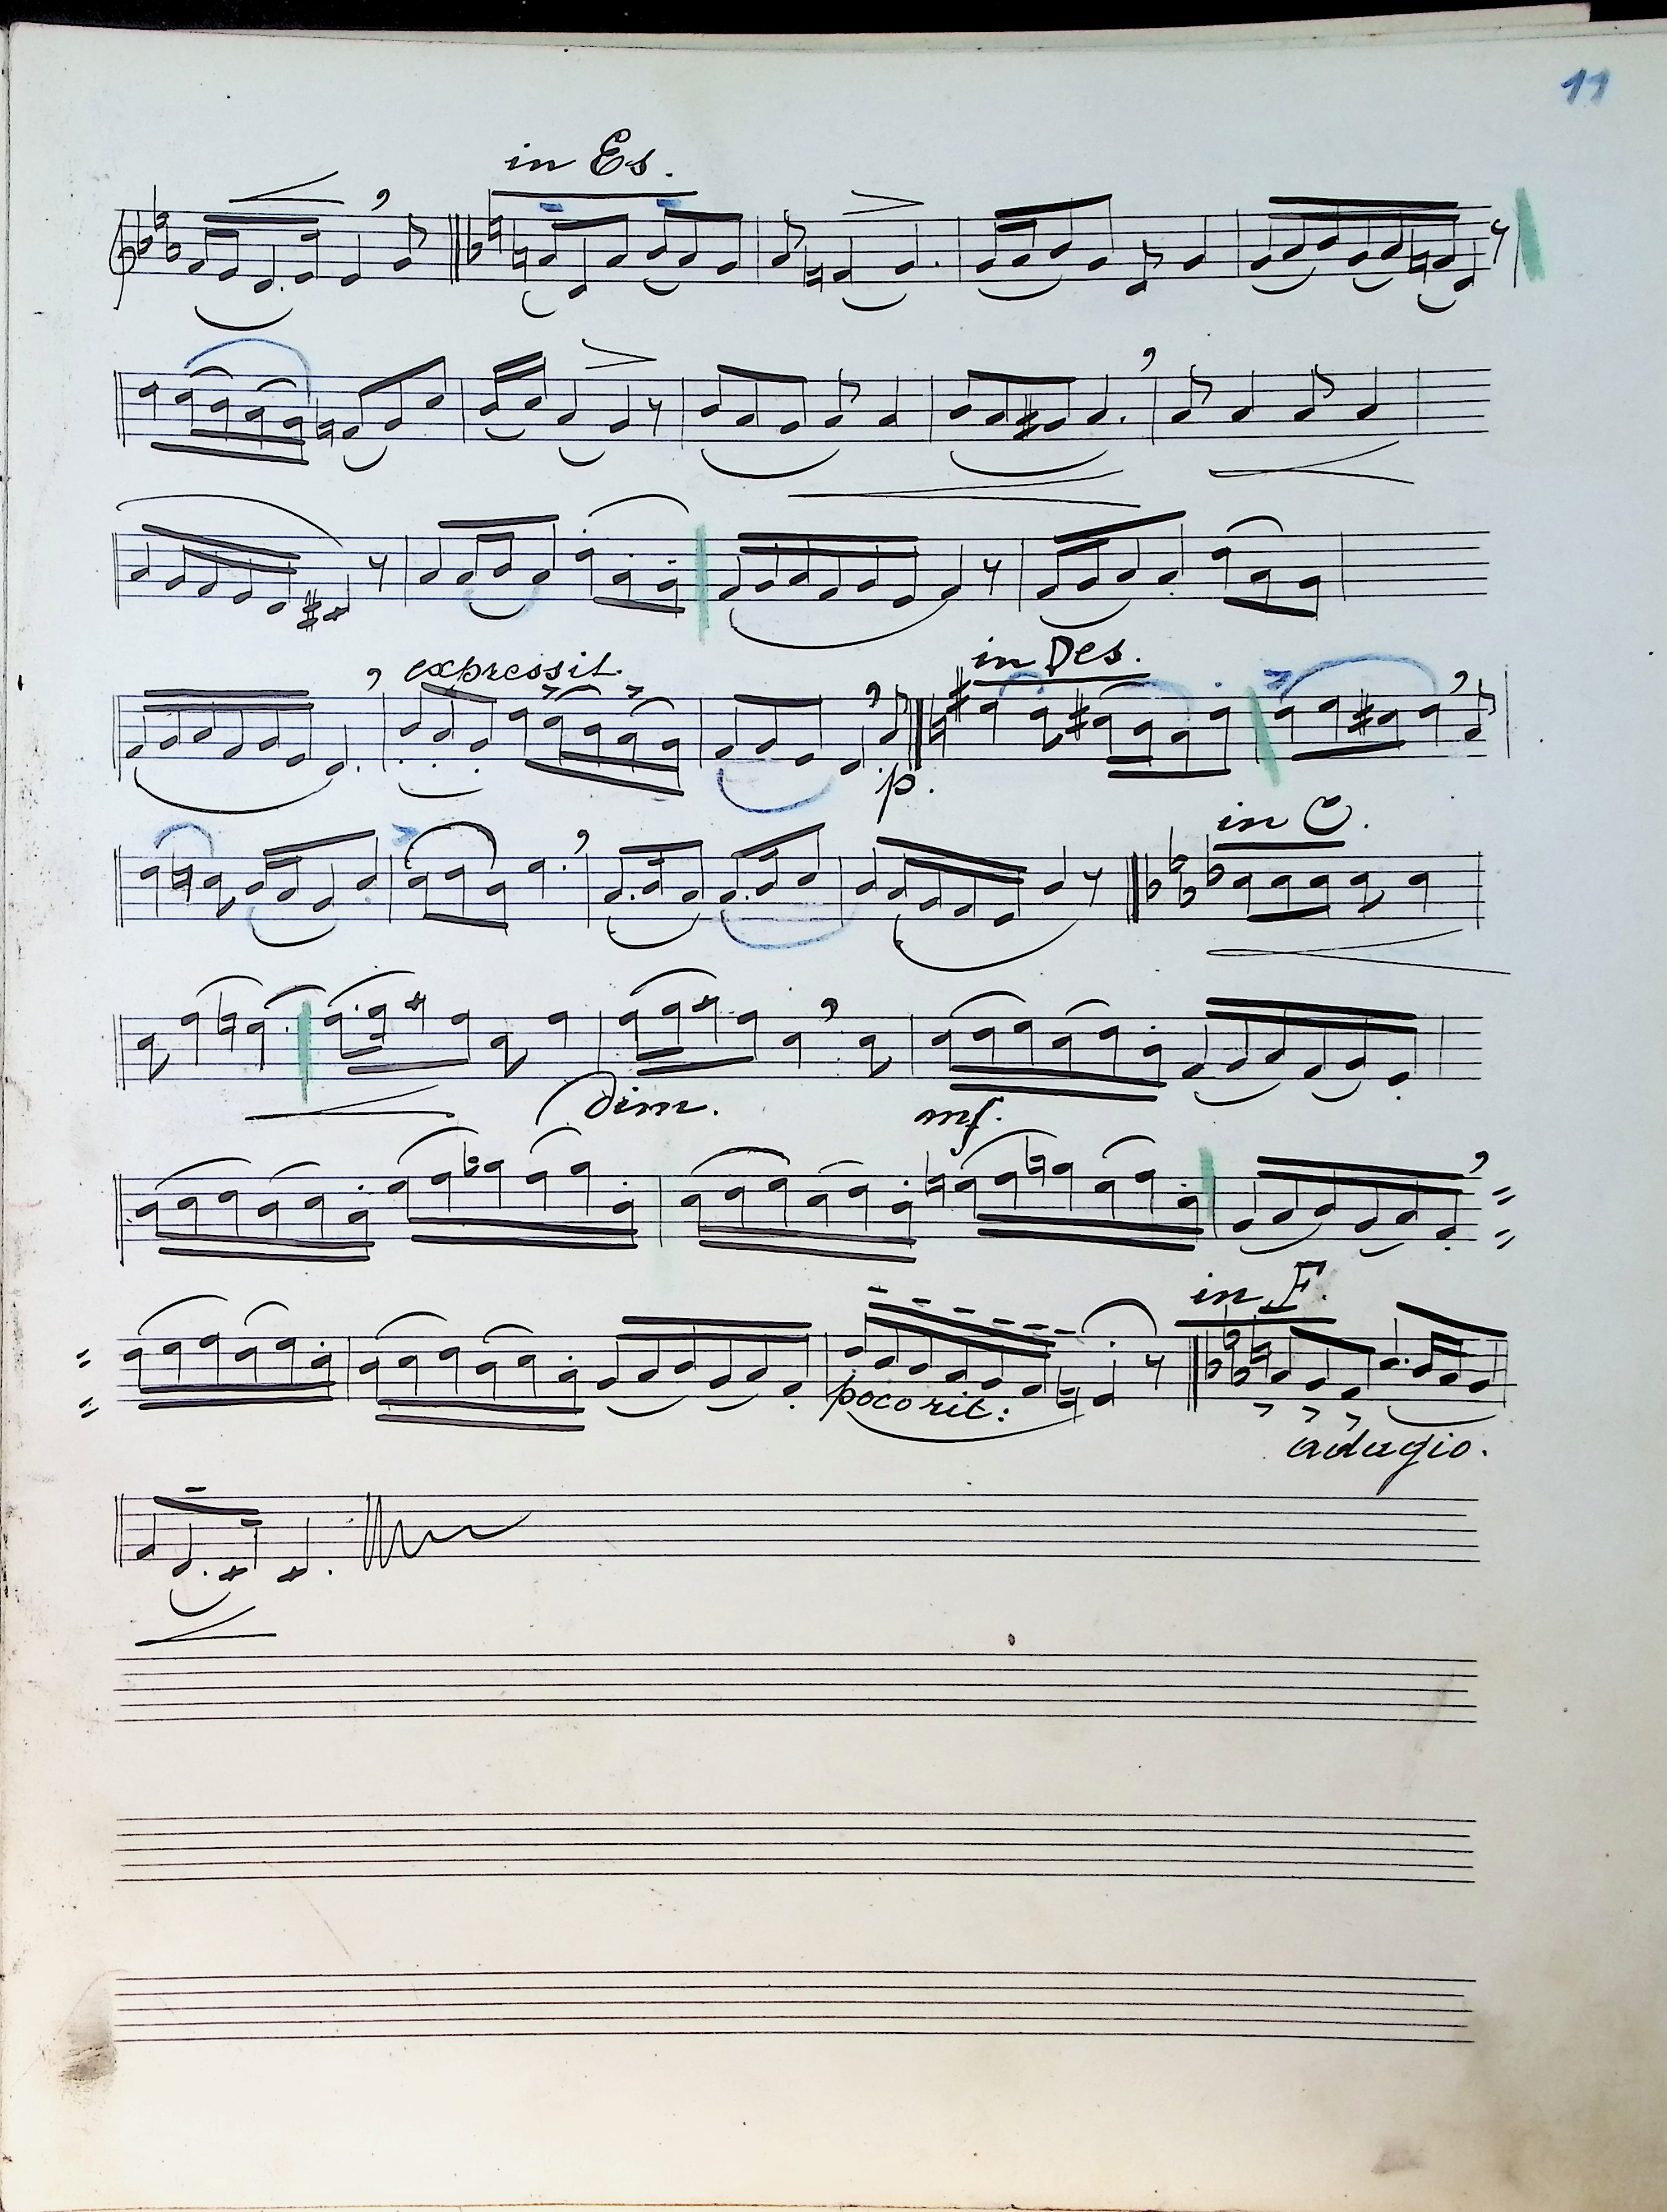 11
in Es.
expressit.
in Des.
p.
in C.
dim.
mf.
in F.
poco rit:
adagio.